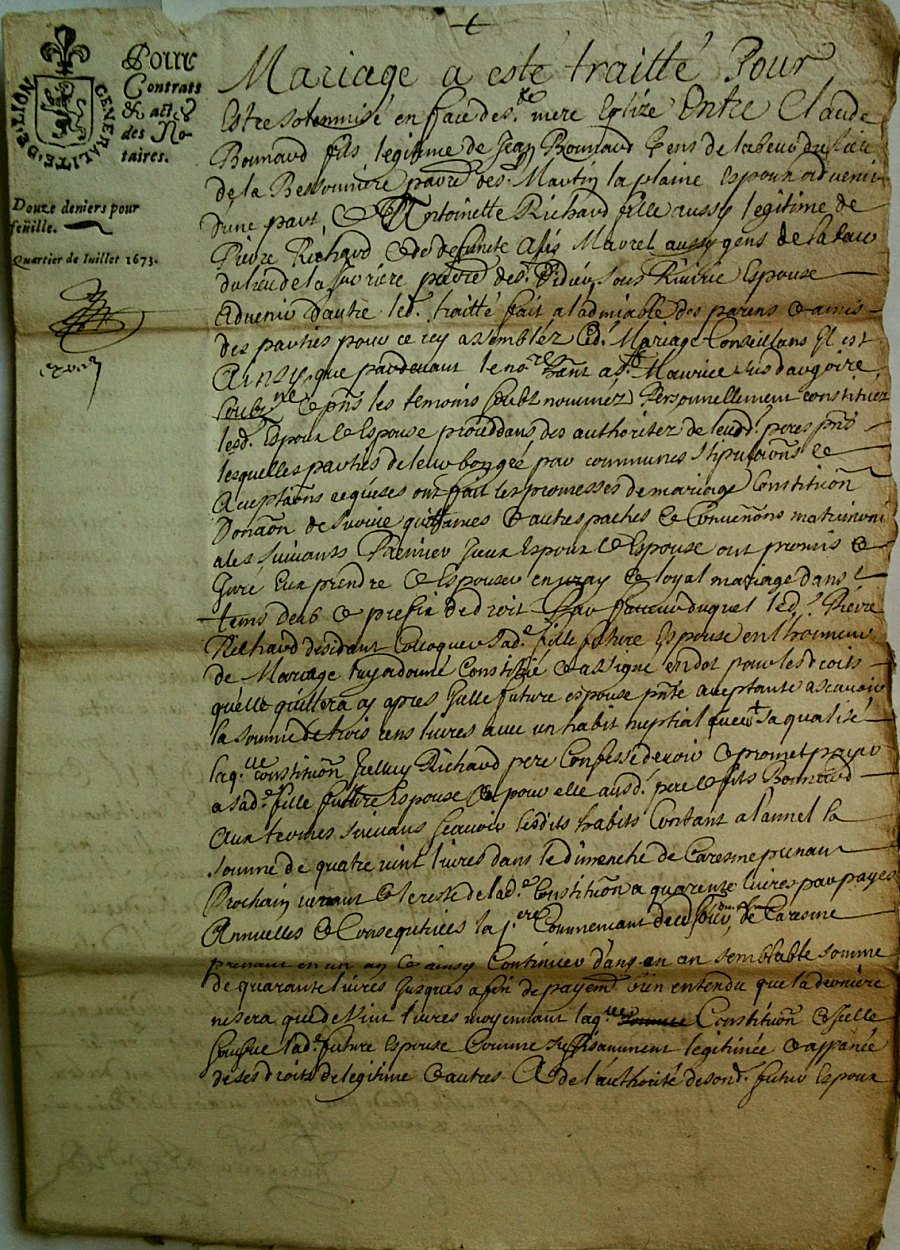 GENERALITE·DE·LION
Pour
Contrats
& actes
des No-
taires.
Douze deniers pour
feüille.
Quartier de Iuillet 1673.
Mariage a esté traitté Pour
Estre solemnisé en face de s.te mere Eglize Entre Claude
Bonnard fils legitime de Jean Bonnard gens de labeur du lieu
de la Bessonniere parre de s.t Martin la plaine Espoux advenir
d'une part, & Anthoinette Richard fille aussy legitime de
Pierre Richard & de defuncte Maurel aussy gens de labeur
du lieu de la parre de s.t Didier sous Riverie Espouse
advenir d'autre led.t traitté fait a l'admiable des parens & amis
des parties pour ce icy assemblez led.t Mariage Conseillans Il est
Ainsy que pardevant le no.re a s.t Maurice sus dargoire
soubz.né & pñs les temoins soubz nommez Personnellement constituez
lesd. Espoux & Espouse proceddans des authoritez de leurd. peres pñs
lesquelles parties de leur bon gré par communes stipulaõns &
Aceptaõns reqüises ont fait les promesses de mariage Constituõn
Donaõn quittances & autres pactes & Convenõns matrimoni
ales suivants Premier Iceux Espoux & Espouse ont promis &
Juré Eux prendre & Espouser en vray & loyal mariage dans
tems deub & prefix de droit Par faveur duquel led. Pierre
Richard desirant Colloquer sad.e fille future Espouse en l'honneur
de Mariage luy a donné Constitué & assigné en dot pour les droits
qu'elle quittera cy apres Icelle future espouse pñte aceptante ascavoir
la somme de trois cens livres avec un habit nuptial suiv.t sa qualité
laq.lle constituõn Icelluy Richard pere Confesse devoir & promet payer
a sad.e fille future Espouse & pour elle ausd. pere & fils Bonnard
Aux termes suivans scavoir lesdits habits Contant a l'annel la
somme de quatre vint livres dans le dimenche de Caresme prenant
Prochain venant & le reste de lad.e Constituõn a quarente livres par payes
Annuelles & Consequtives la p.ere Commencant de Caresme
prenant en un an & ainsy Continuer d'an en an semblable somme
de quarante livres Jusques a fin de payem.t bien entendu que la derniere
ne sera que de vint livres moyennant laq.lle Constituõn & icelle
lad.e future Espouse Comme suffisamment legitimée & appanée
de ses droits de legitime & autres A de l'authorité de sond. futur Espoux